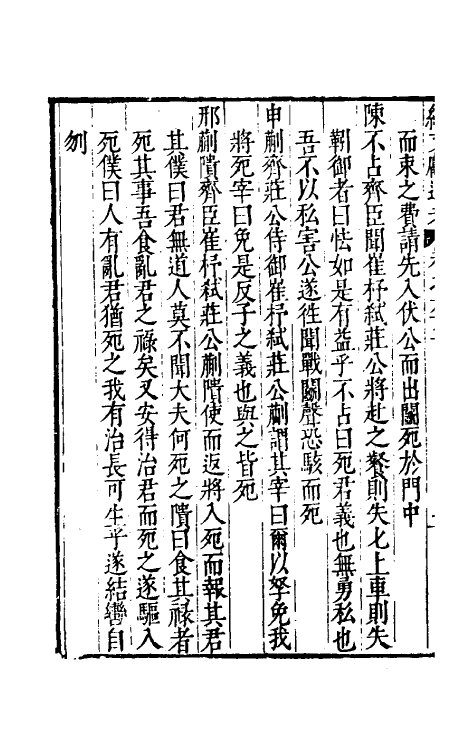 而束之費請先入伏公而出鬬死於門中
陳不占齊臣聞崔杼弑莊公將赴之餐則失匕上車則失
靷御者曰怯如是有益乎不占曰死君義也無勇私也
吾不以私害公遂徃聞戰鬬聲恐駭而死
申蒯齊莊公侍御崔杼弑莊公蒯謂其宰曰爾以孥免我
將死宰曰免是反子之義也與之皆死
邢蒯瞶齊臣崔杼弑莊公蒯瞶使而返將入死而報其君
其僕曰君無道人莫不聞大夫何死之瞶曰食其禄者
死其事吾食亂君之禄矣又安得治君而死之遂驅入
死僕曰人有亂君猶死之我有治長可生乎遂結轡自
刎